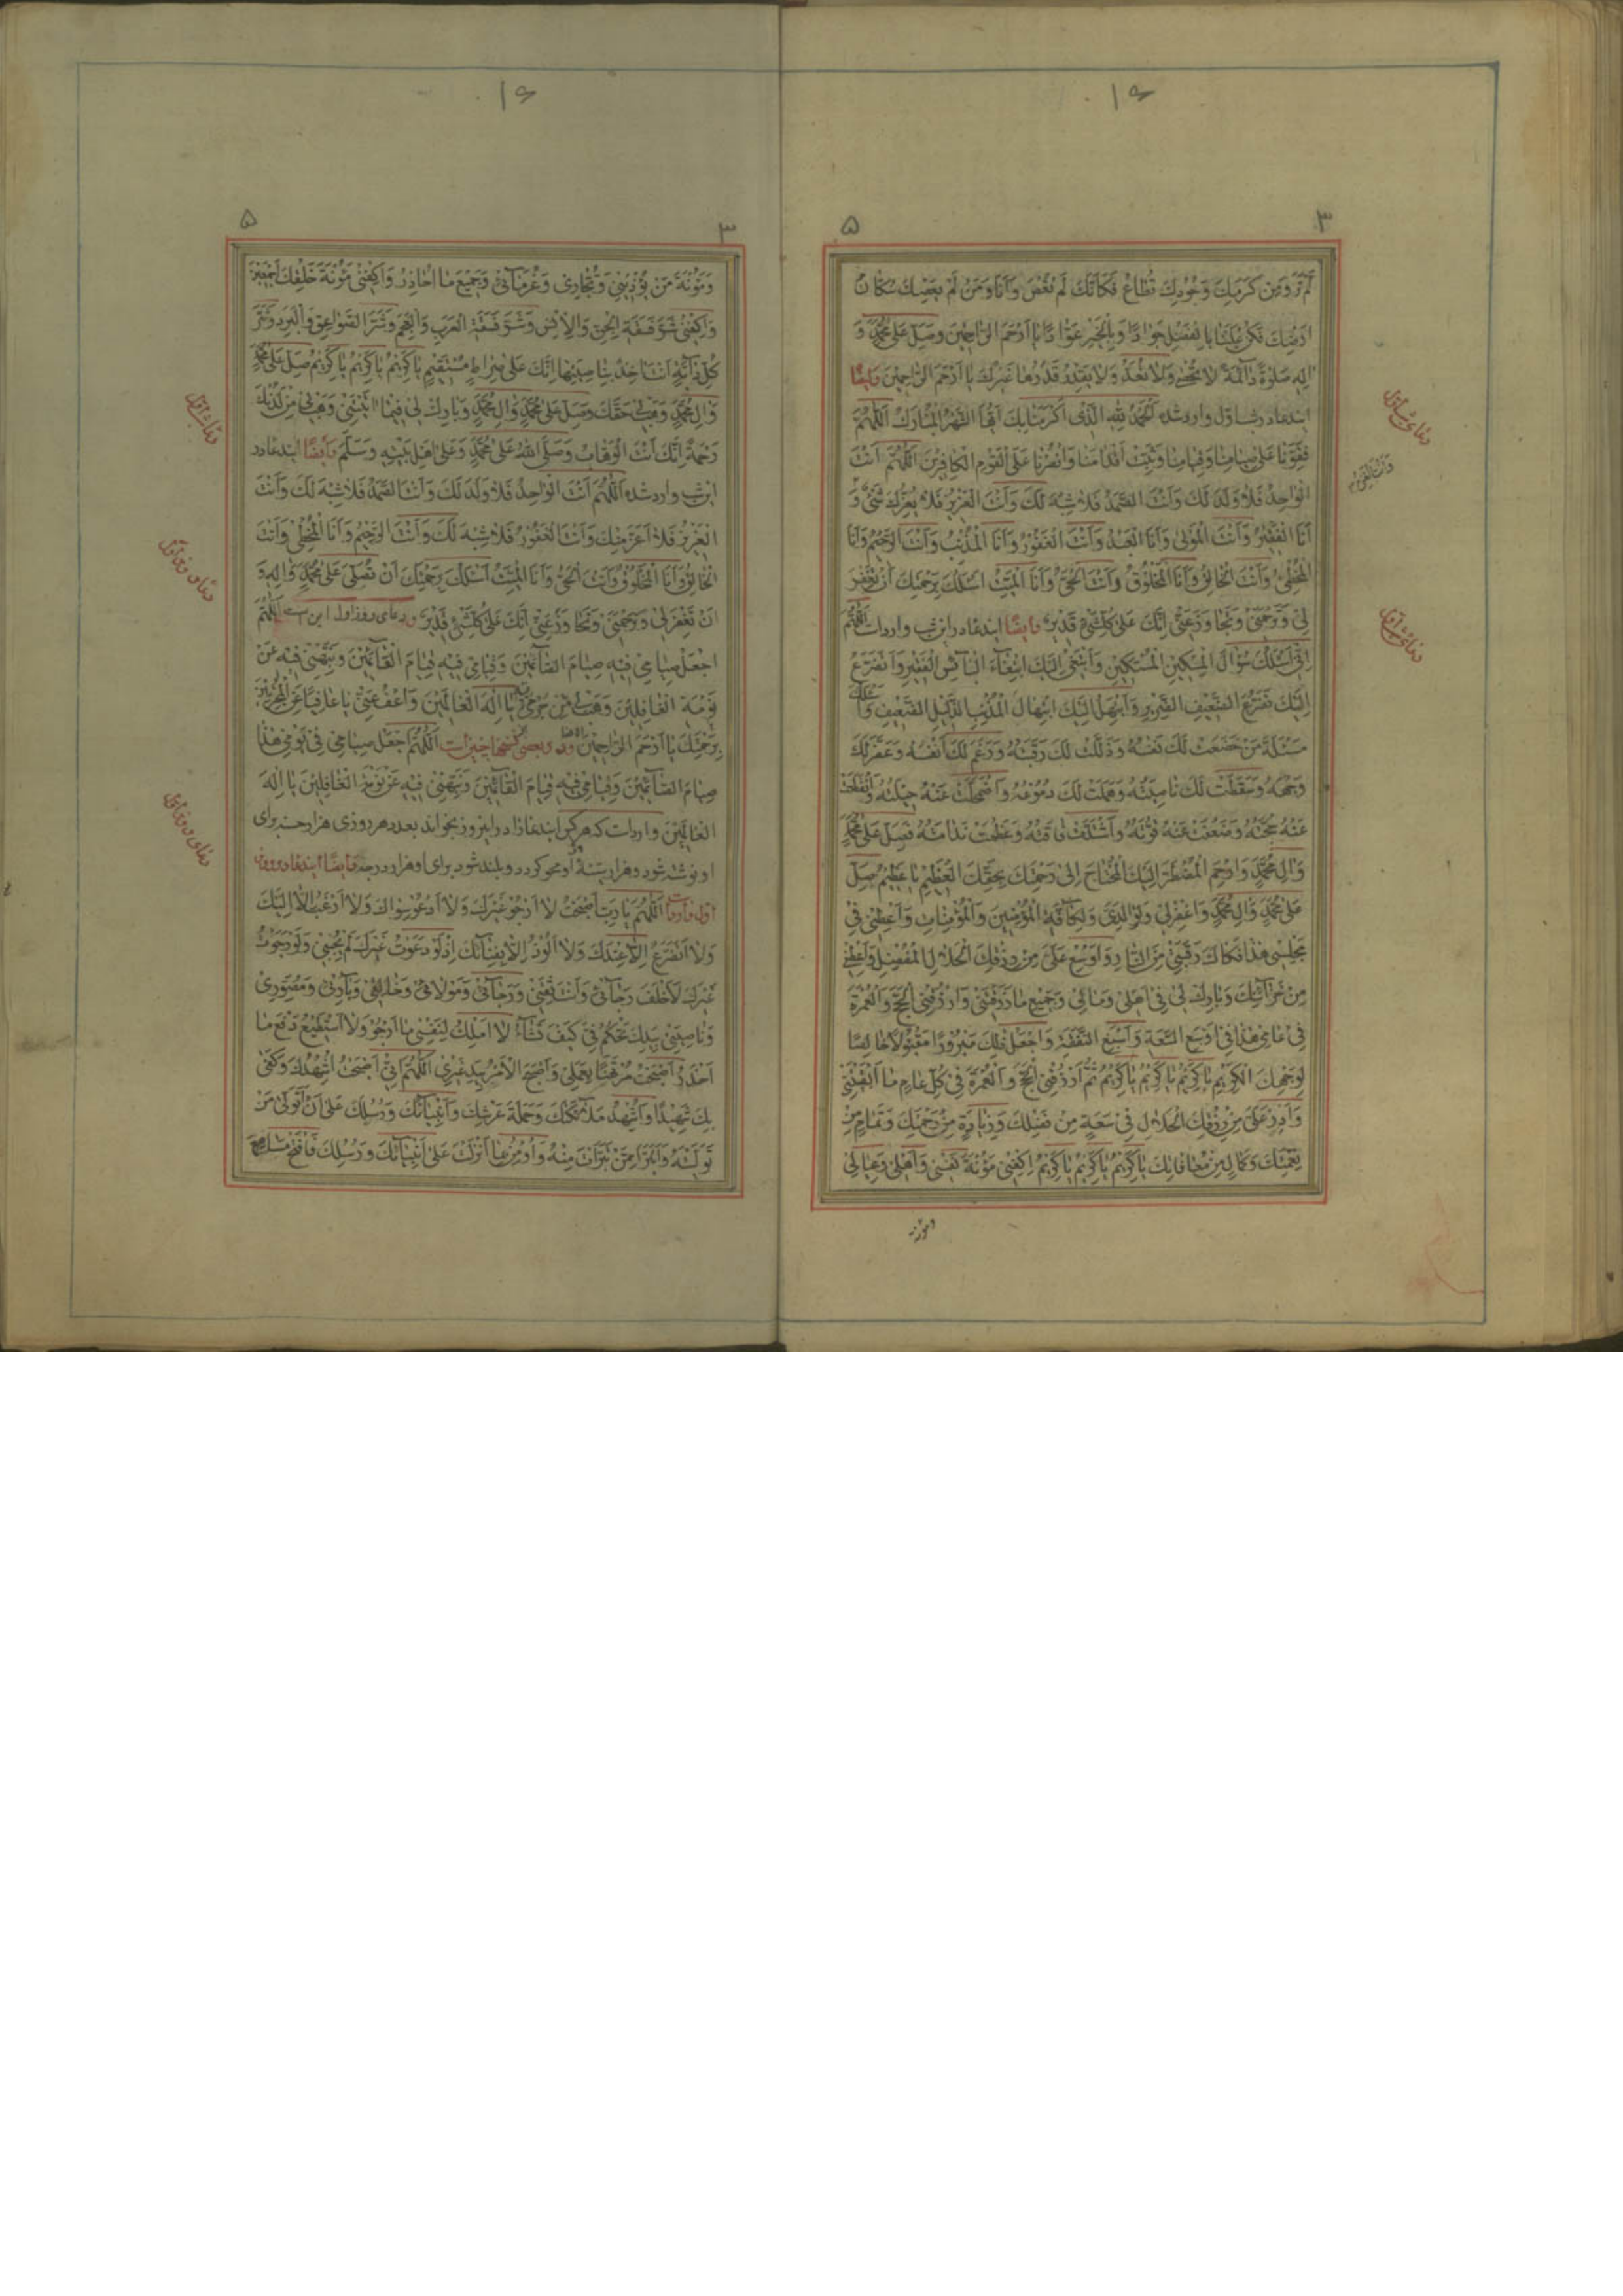 ١۶
٣ ۵
لَمْ تُرَ وَمِنْ كَرَمِكَ وَجُودِكَ تُطاعُ فَكَأَنَّكَ لَمْ تُعْصَ وَأَنَا وَمَنْ لَمْ يَعْصِكَ سُكّانُ
اَرْضِكَ فَكُنْ عَلَيْنا بِالْفَضْلِ جَواداً وَبِالْخَيْرِ عَوّاداً يا اَرْحَمَ الرّاحِمينَ وَصَلِّ عَلى مُحَمَّدٍ وَ
الِهِ صَلوةً دائِمَةً لا تُحْصى وَلا تُعَدُّ وَلا يَقْدِرُ قَدْرَها غَيْرُكَ يا اَرْحَمَ الرّاحِمينَ وايضًا
ايندعا در شب اول وارد شده اَلْحَمْدُ لِلّهِ الَّذي اَكْرَمَنا بِكَ اَيُّهَا الشَّهْرُ الْمُبارَكُ اَللّهُمَّ
فَقَوِّنا عَلى صِيامِنا وَقِيامِنا وَثَبِّتْ اَقْدامَنا وَانْصُرْنا عَلَى الْقَوْمِ الْكافِرينَ اَللّهُمَّ اَنْتَ
الْواحِدُ فَلا وَلَدَ لَكَ وَاَنْتَ الصَّمَدُ فَلا شِبْهَ لَكَ وَاَنْتَ الْعَزيزُ فَلا يُعِزُّكَ شَيْءٌ وَ
اَنَا الْفَقيرُ وَاَنْتَ الْمَوْلى وَاَنَا الْعَبْدُ وَاَنْتَ الْغَفُورُ وَاَنَا الْمُذْنِبُ وَاَنْتَ الرَّحيمُ وَاَنَا
الْمُخْطِئُ وَاَنْتَ الْخالِقُ وَاَنَا الْمَخْلُوقُ وَاَنْتَ الْحَيُّ وَاَنَا الْمَيِّتُ اَسْئَلُكَ بِرَحْمَتِكَ اَنْ تَغْفِرَ
لي وَتَرْحَمَني وَتَجاوَزَ عَنّي اِنَّكَ عَلى كُلِّ شَيْءٍ قَديرٌ وايضًا ايندعا در اين شب وارد است اَللّهُمَّ
اِنّي اَسْئَلُكَ سُؤالَ الْمِسْكينِ الْمُسْتَكينِ وَاَبْتَغي اِلَيْكَ ابْتِغاءَ الْبائِسِ الْفَقيرِ وَاَتَضَرَّعُ
اِلَيْكَ تَضَرُّعَ الضَّعيفِ الضَّريرِ وَاَبْتَهِلُ اِلَيْكَ ابْتِهالَ الْمُذْنِبِ الذَّليلِ الضَّعيفِ وَاَسْئَلُكَ
مَسْئَلَةَ مَنْ خَضَعَتْ لَكَ نَفْسُهُ وَذَلَّتْ لَكَ رَقَبَتُهُ وَرَغِمَ لَكَ اَنْفُهُ وَعَفَّرَ لَكَ
وَجْهَهُ وَسَقَطَتْ لَكَ ناصِيَتُهُ وَهَمَلَتْ لَكَ دُمُوعُهُ وَاضْمَحَلَّتْ عَنْهُ حيلَتُهُ وَانْقَطَعَتْ
عَنْهُ حُجَّتُهُ وَضَعُفَتْ عَنْهُ قُوَّتُهُ وَاشْتَدَّتْ فاقَتُهُ وَعَظُمَتْ نَدامَتُهُ فَصَلِّ عَلى مُحَمَّدٍ
وَالِ مُحَمَّدٍ وَارْحَمِ الْمُضْطَرَّ اِلَيْكَ الْمُحْتاجَ اِلى رَحْمَتِكَ بِحَقِّكَ الْعَظيمِ يا عَظيمُ صَلِّ
عَلى مُحَمَّدٍ وَالِ مُحَمَّدٍ وَاغْفِرْ لي وَلِوالِدَيَّ وَلِكافَّةِ الْمُؤْمِنينَ وَالْمُؤْمِناتِ وَاَعْطِني في
مَجْلِسي هذا فَكاكَ رَقَبَتي مِنَ النّارِ وَاَوْسِعْ عَلَيَّ مِنْ رِزْقِكَ الْحَلالِ الْمُفْضِلِ وَاَعْطِني
مِنْ خَزائِنِكَ وَبارِكْ لي في اَهْلي وَمالي وَجَميعِ ما رَزَقْتَني وَارْزُقْنِي الْحَجَّ وَالْعُمْرَةَ
في عامي هذا في اَوْسَعِ السَّعَةِ وَاَسْبَغِ النَّفَقَةِ وَاجْعَلْ ذلِكَ مَبْرُوراً مَقْبُولاً خالِصاً
لِوَجْهِكَ الْكَريمِ يا كَريمُ يا كَريمُ يا كَريمُ ثُمَّ ارْزُقْنِي الْحَجَّ وَالْعُمْرَةَ في كُلِّ عامٍ ما اَبْقَيْتَني
وَاَدِرَّ عَلَيَّ مِنْ رِزْقِكَ الْحَلالِ في سَعَةٍ مِنْ فَضْلِكَ وَزِيادَةٍ مِنْ رَحْمَتِكَ وَتَمامٍ مِنْ
نِعْمَتِكَ وَكَمالٍ مِنْ مُعافاتِكَ يا كَريمُ يا كَريمُ يا كَريمُ اِكْفِني مَؤُنَةَ نَفْسي وَاَهْلي وَعِيالي
١۶
٣ ۵
وَمَؤُنَةَ مَنْ يُؤْذيني وَتِجارَتي وَغُرَمائي وَجَميعَ ما اُحاذِرُ وَاكْفِني مَؤُنَةَ خَلْقِكَ اَجْمَعينَ
وَاكْفِني شَرَّ فَسَقَةِ الْجِنِّ وَالْاِنْسِ وَشَرَّ فَسَقَةِ الْعَرَبِ وَالْعَجَمِ وَشَرَّ الصَّواعِقِ وَالْبَرَدِ وَشَرَّ
كُلِّ دابَّةٍ اَنْتَ اخِذٌ بِناصِيَتِها اِنَّكَ عَلى صِراطٍ مُسْتَقيمٍ يا كَريمُ يا كَريمُ يا كَريمُ صَلِّ عَلى مُحَمَّدٍ
وَالِ مُحَمَّدٍ وَهَبْ لي حَقَّكَ وَصَلِّ عَلى مُحَمَّدٍ وَالِ مُحَمَّدٍ وَبارِكْ لي فيما اتَيْتَني وَهَبْ لي مِنْ لَدُنْكَ
رَحْمَةً اِنَّكَ اَنْتَ الْوَهّابُ وَصَلَّى اللهُ عَلى مُحَمَّدٍ وَعَلى اَهْلِ بَيْتِهِ وَسَلَّمَ وايضًا ايندعا در
اين شب وارد شده اَللّهُمَّ اَنْتَ الْواحِدُ فَلا وَلَدَ لَكَ وَاَنْتَ الصَّمَدُ فَلا شِبْهَ لَكَ وَاَنْتَ
الْعَزيزُ فَلا اَعَزَّ مِنْكَ وَاَنْتَ الْغَفُورُ فَلا شِبْهَ لَكَ وَاَنْتَ الرَّحيمُ وَاَنَا الْمُخْطِئُ وَاَنْتَ
الْخالِقُ وَاَنَا الْمَخْلُوقُ وَاَنْتَ الْحَيُّ وَاَنَا الْمَيِّتُ اَسْئَلُكَ بِرَحْمَتِكَ اَنْ تُصَلِّيَ عَلى مُحَمَّدٍ وَالِهِ وَ
اَنْ تَغْفِرَ لي وَتَرْحَمَني وَتَجاوَزَ عَنّي اِنَّكَ عَلى كُلِّ شَيْءٍ قَديرٌ ودعاى روز اول اين است اَللّهُمَّ
اجْعَلْ صِيامي فيهِ صِيامَ الصّائِمينَ وَقِيامي فيهِ قِيامَ الْقائِمينَ وَنَبِّهْني فيهِ عَنْ
نَوْمَةِ الْغافِلينَ وَهَبْ لي جُرْمي يا اِلهَ الْعالَمينَ وَاعْفُ عَنّي يا عافِياً عَنِ الْمُجْرِمينَ
بِرَحْمَتِكَ يا اَرْحَمَ الرّاحِمينَ ودر بعضى نسخها چنين است اَللّهُمَّ اجْعَلْ صِيامي في يَوْمي هذا
صِيامَ الصّائِمينَ وَقِيامي فيهِ قِيامَ الْقائِمينَ وَنَبِّهْني فيهِ عَنْ نَوْمَةِ الْغافِلينَ يا اِلهَ
الْعالَمينَ وارد است كه هر كس ايندعا را در اينروز بخواند بعدد هر روزى هزار حسنه براى
او نوشته شود و هزار سيئة او محو كردد و بلند شود براى او هزار درجه وايضًا ايندعا در روز
اول وارد است اَللّهُمَّ يا رَبِّ اَصْبَحْتُ لا اَرْجُو غَيْرَكَ وَلا اَدْعُو سِواكَ وَلا اَرْغَبُ اِلّا اِلَيْكَ
وَلا اَتَضَرَّعُ اِلّا عِنْدَكَ وَلا اَلُوذُ اِلّا بِفِنائِكَ اِذْ لَوْ دَعَوْتُ غَيْرَكَ لَمْ يُجِبْني وَلَوْ رَجَوْتُ
غَيْرَكَ لَاَخْلَفَ رَجائي وَاَنْتَ ثِقَتي وَرَجائي وَمَوْلايَ وَخالِقي وَبارِئي وَمُصَوِّري
وَناصِيَتي بِيَدِكَ تَحْكُمُ فِيَّ كَيْفَ تَشاءُ لا اَمْلِكُ لِنَفْسي ما اَرْجُو وَلا اَسْتَطيعُ دَفْعَ ما
اَحْذَرُ اَصْبَحْتُ مُرْتَهَناً بِعَمَلي وَاَصْبَحَ الْاَمْرُ بِيَدِ غَيْري اَللّهُمَّ اِنّي اَصْبَحْتُ اُشْهِدُكَ وَكَفى
بِكَ شَهيداً وَاُشْهِدُ مَلائِكَتَكَ وَحَمَلَةَ عَرْشِكَ وَاَنْبِياءَكَ وَرُسُلَكَ عَلى اَنْ اَتَوَلّى مَنْ
تَوَلَّيْتَهُ وَاَتَبَرَّأَ مِمَّنْ تَبَرَّأْتَ مِنْهُ وَاُومِنُ بِما اَنْزَلْتَ عَلى اَنْبِيائِكَ وَرُسُلِكَ فَافْتَحْ مَسامِعَ